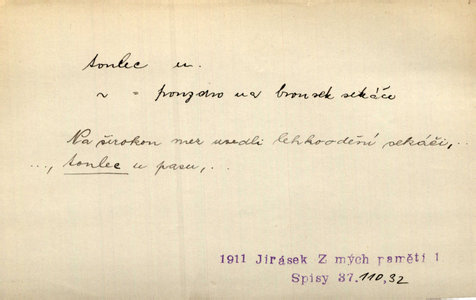 toulec m.
~ = pouzdro na brousek sekáče
Na širokou mez usedli lehkoodění sekáči, ..
..., toulec u pasu, ..
1911 Jirásek Z mých pamětí 1
Spisy 37.110,32